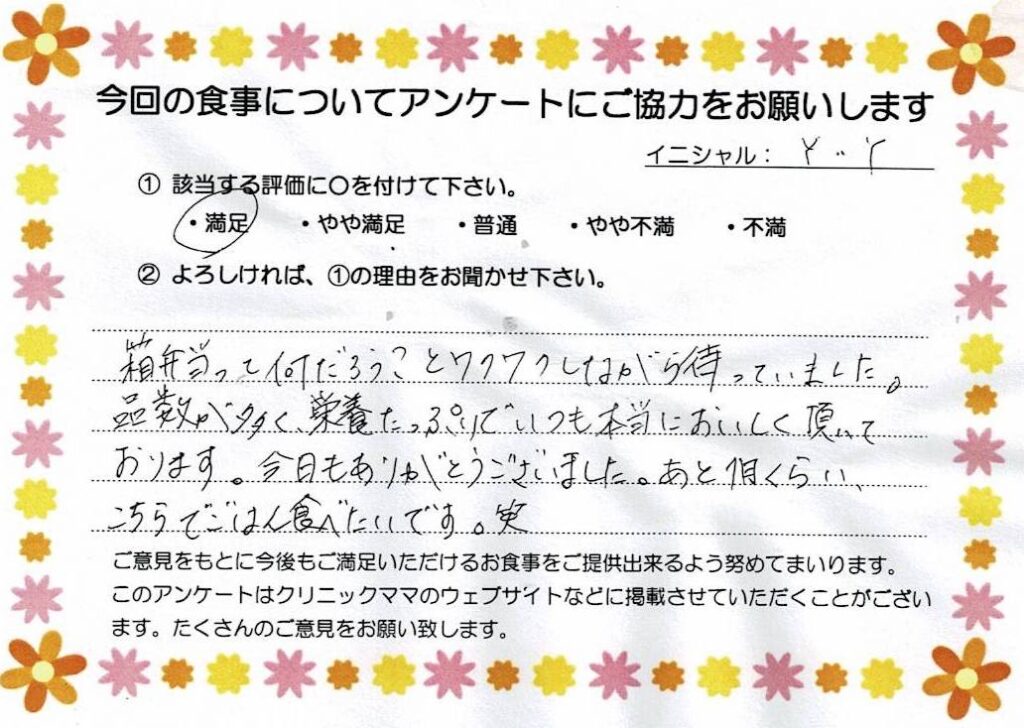 今回の食事についてアンケートにご協力をお願いします
イニシャル： Y..Y
① 該当する評価に〇を付けて下さい。
・満足 ・やや満足 ・普通 ・やや不満 ・不満
② よろしければ、①の理由をお聞かせ下さい。
箱弁当って何だろうことワクワクしながら待っていました。
品数が多く、栄養たっぷりでいつも本当においしく頂いて
おります。今日もありがとうございました。あと1ヶ月くらい、
こちらでごはん食べたいです。笑
ご意見をもとに今後もご満足いただけるお食事をご提供出来るよう努めてまいります。
このアンケートはクリニックママのウェブサイトなどに掲載させていただくことがござい
ます。たくさんのご意見をお願い致します。